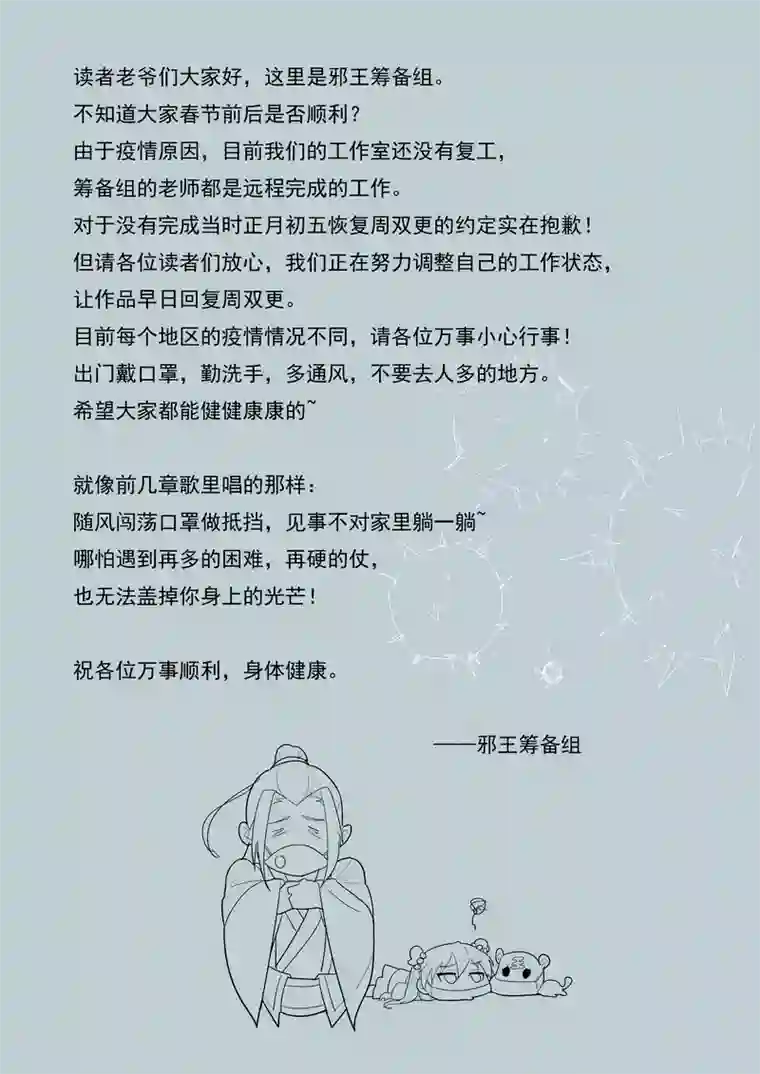 读者老爷们大家好，这里是邪王筹备组。
不知道大家春节前后是否顺利？
由于疫情原因，目前我们的工作室还没有复工，
筹备组的老师都是远程完成的工作。
对于没有完成当时正月初五恢复周双更的约定实在抱歉！
但请各位读者们放心，我们正在努力调整自己的工作状态，
让作品早日回复周双更。
目前每个地区的疫情情况不同，请各位万事小心行事！
出门戴口罩，勤洗手，多通风，不要去人多的地方。
希望大家都能健健康康的~
就像前几章歌里唱的那样：
随风闯荡口罩做抵挡，见事不对家里躺一躺~
哪怕遇到再多的困难，再硬的仗，
也无法盖掉你身上的光芒！
祝各位万事顺利，身体健康。
——邪王筹备组
王